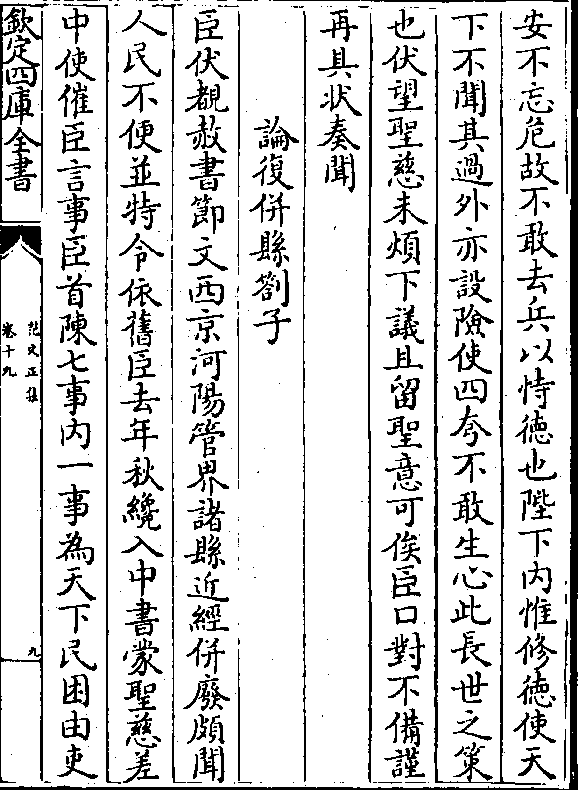 安不忘危故不敢去兵以恃德也陛下内惟修德使天
下不聞其過外亦設險使四夸不敢生心此長世之策
也伏望聖慈未煩下議且留聖意可俟臣口對不備謹
再具状奏聞
論復併縣劄子
臣伏覩赦書節文西京河陽管界諸縣近經併廢頗聞
人民不便並特令依舊臣去年秋纔入中書蒙聖慈差
中使催臣言事臣首陳七事内一事為天下民困由吏
欽定四庫全書
范文正集
卷十九
九